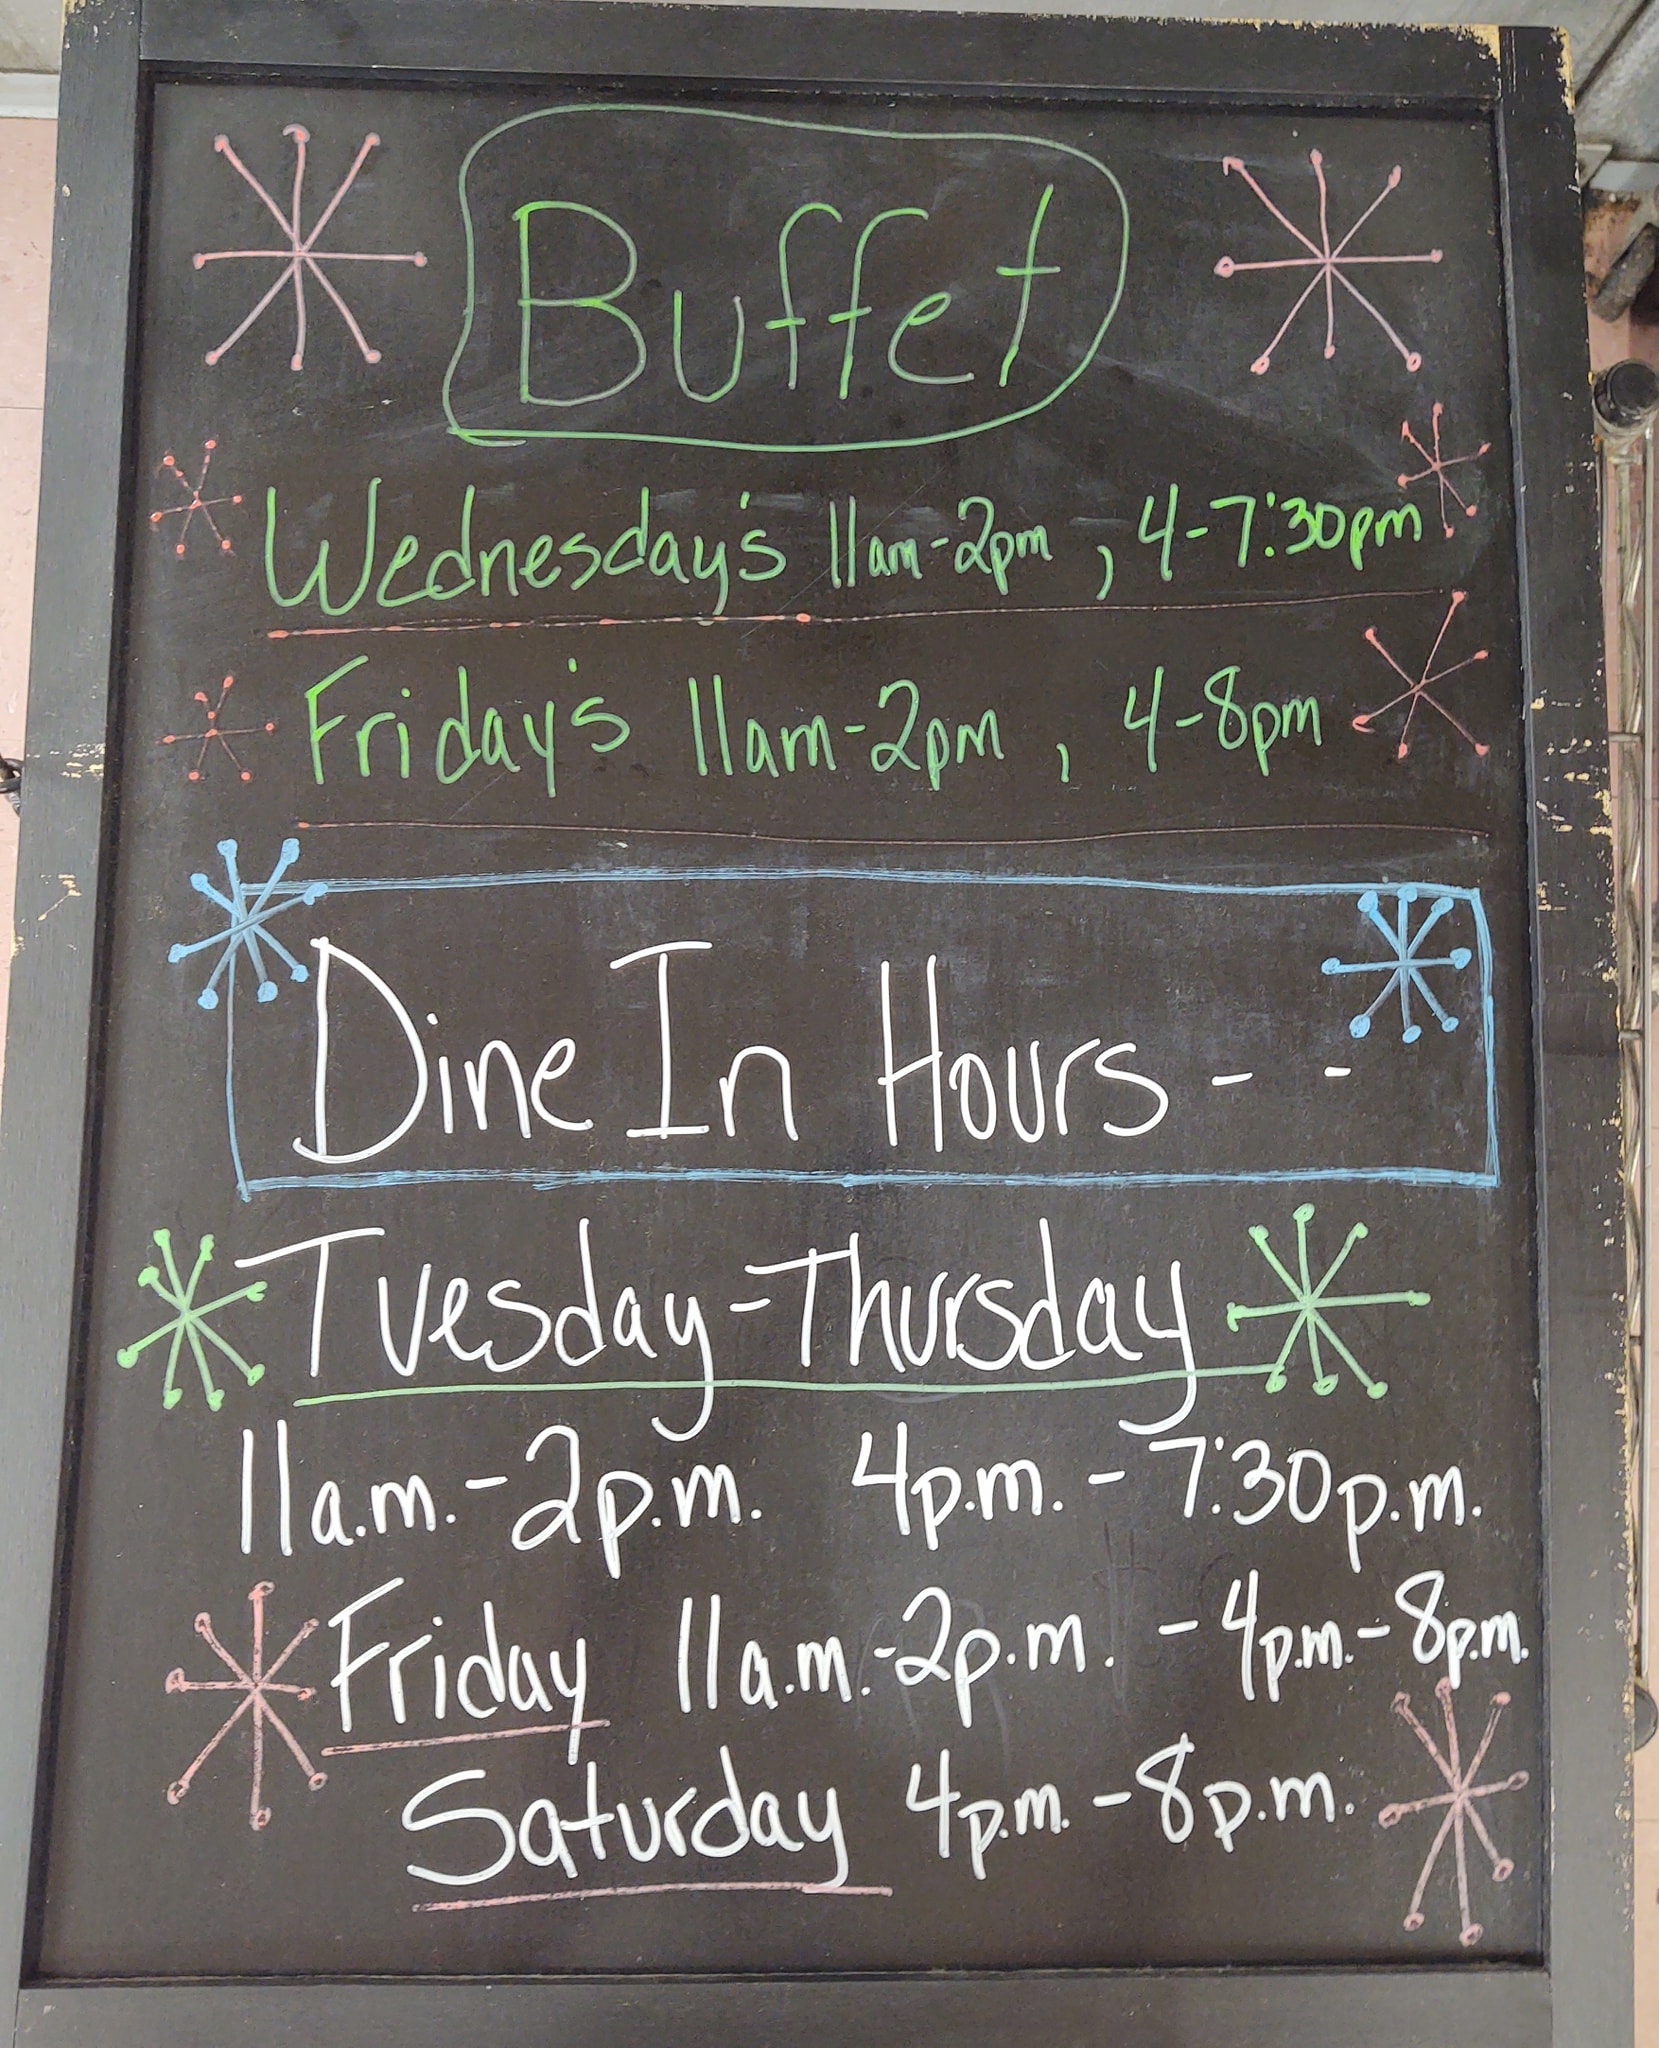 Buffet
Wednesday's 11am-2pm, 4-7:30pm
Friday's 11am-2pm, 4-8pm
Dine In Hours - -
Tuesday-Thursday
11a.m.-2p.m. 4p.m.-7:30p.m.
Friday 11a.m.-2p.m. -4p.m.-8p.m.
Saturday 4p.m.-8p.m.